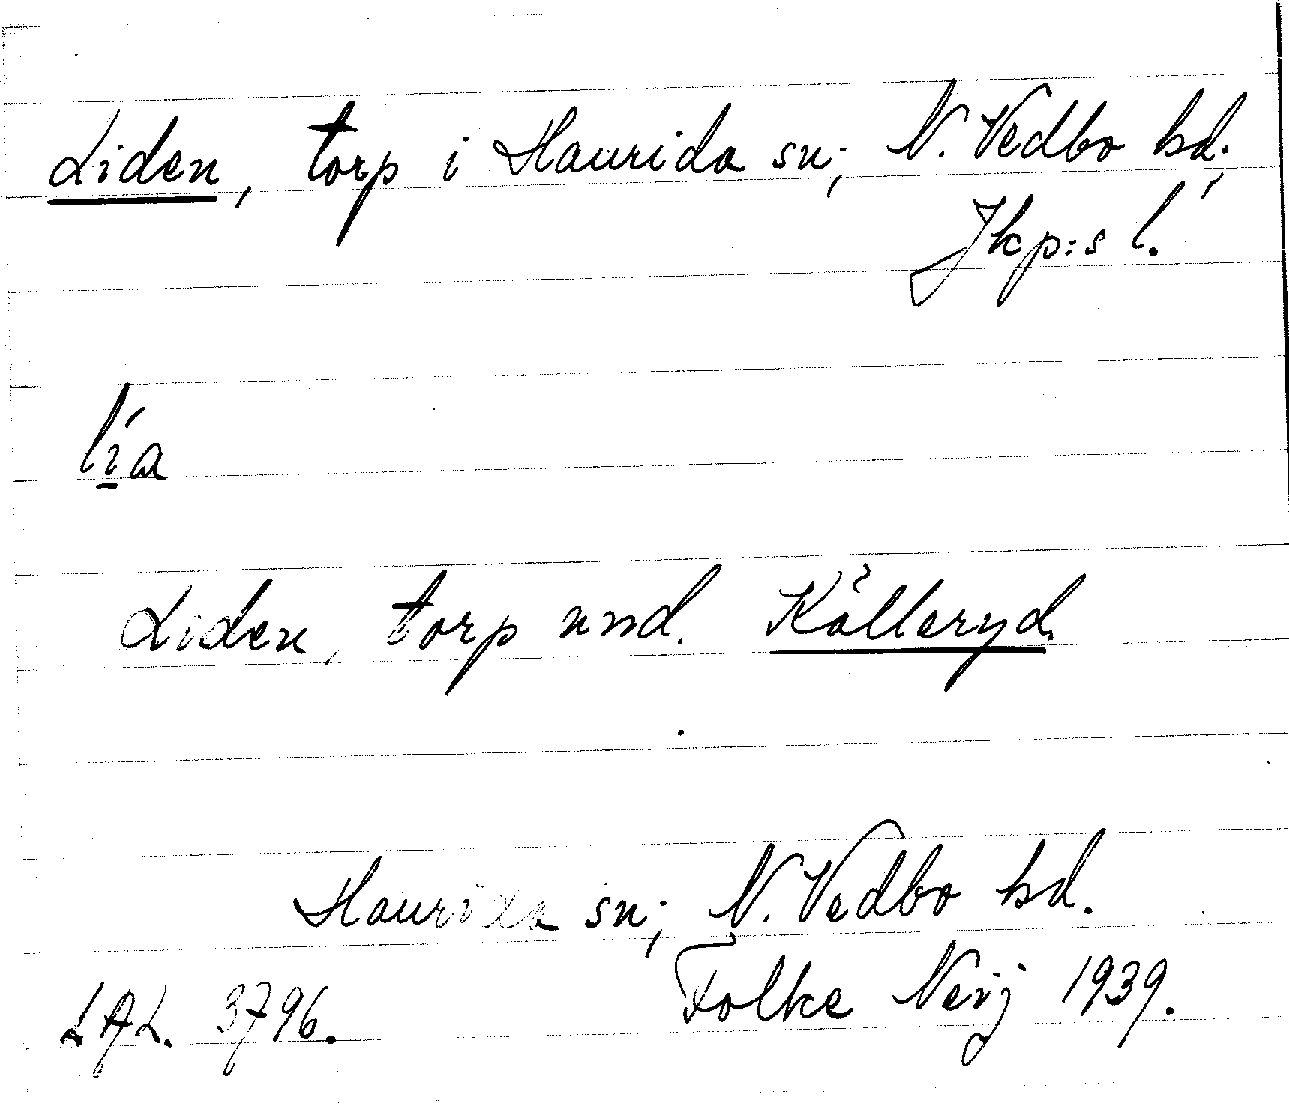 Liden, torp i Haurida sn; N. Vedbo hd.,
Jkp:s l.
lía
Liden, torp und. Kålleryd.
Haurida sn; N. Vedbo hd.
Folke Neij 1939.
LAL. 3796.